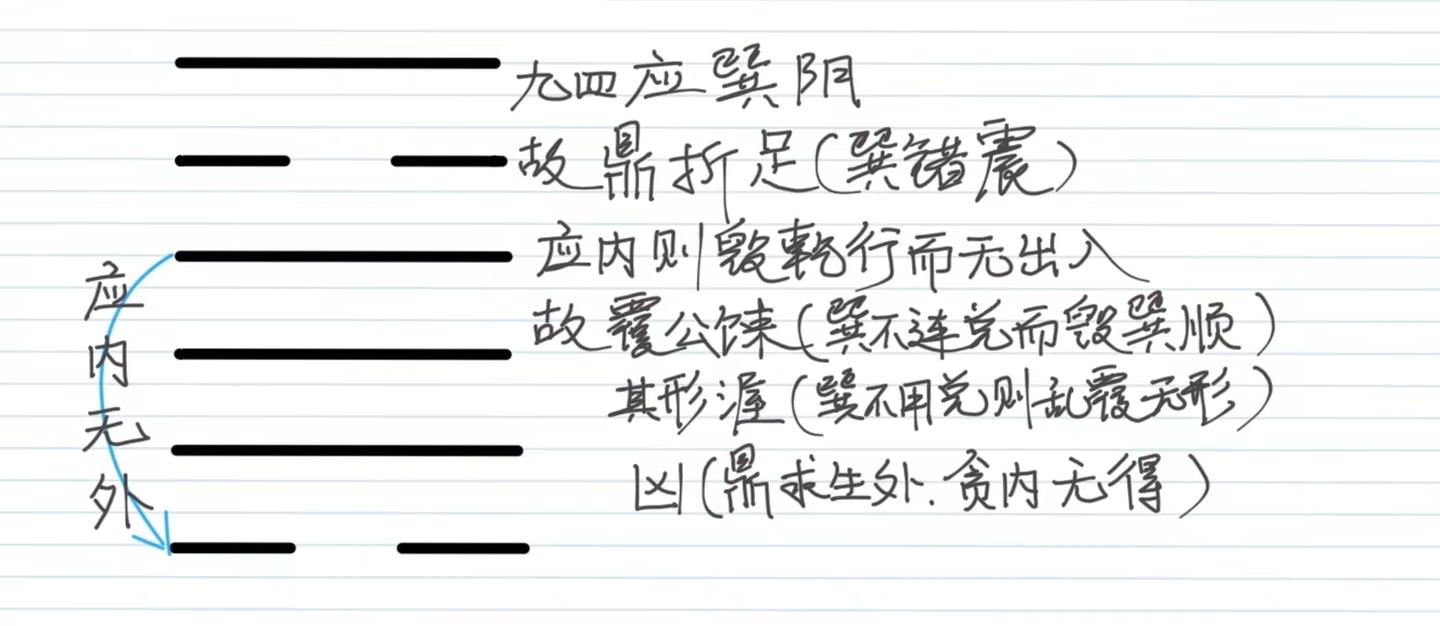 九四应巽阴
故鼎折足(巽错震)
应内则毁乾行而无出入
故覆公餗(巽不连兑而毁巽顺)
其形渥(巽不用兑则乱覆无形)
凶(鼎求生外.贪内无得)
应内无外